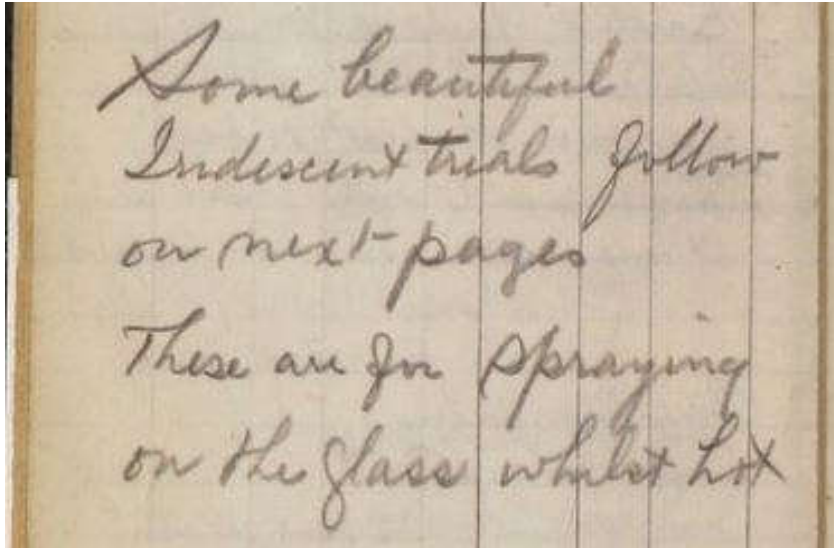 Some beautiful
Iridescent trials follow
on next pages
These are for spraying
on the glass whilst hot